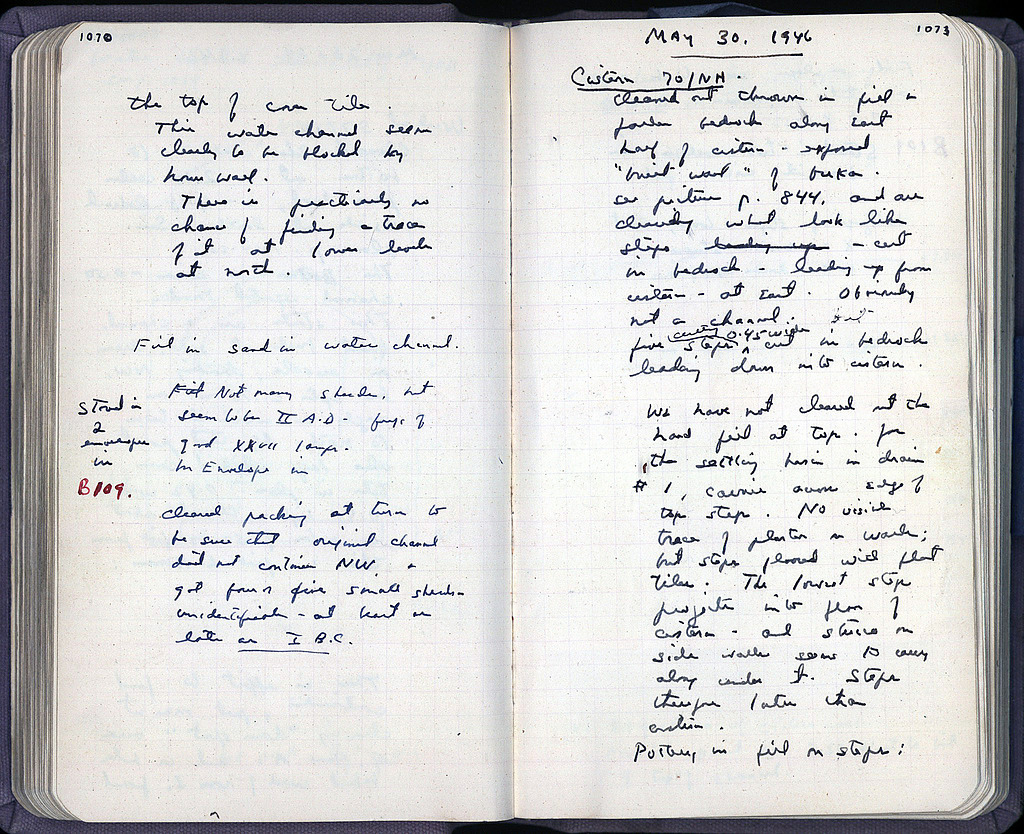 1070
the top of cover tile.
This water channel seems
clearly to be blocked by
house wall.
There is practically no
chance of finding a trace
of it at lower levels
at north.
Fill in sand in water channel.
Not many sherds, but
seem to be II A.D. - frags of
good XXVII lamps.
In Envelope in
Stored in
2
envelopes
in
B109.
cleared packing at turn to
be sure that original channel
did not continue NW, &
got four or five small sherds -
unidentifiable - at least as
late as I B.C.
1073
MAY 30, 1946
Cistern 70/NH.
cleared out thrown in fill &
bedrock along East
half of cistern - exposed
"built wall" of
see picture p. 844, and are
cleaning what look like
steps leading up - cut
in bedrock - leading up from
cistern - at East. Obviously
not a channel. but
five steps, 0.45 wide cut in bedrock
leading down into cistern.
We have not cleared out the
hard fill at top. for
the settling basin in drain
# 1, comes across edge of
top step. No visible
trace of plaster on walls;
but steps floored with flat
tiles. The lowest step
projects into floor of
cistern - and stucco on
side walls seems to carry
along under it. Steps
therefore later than
cistern.
Pottery in fill on steps: